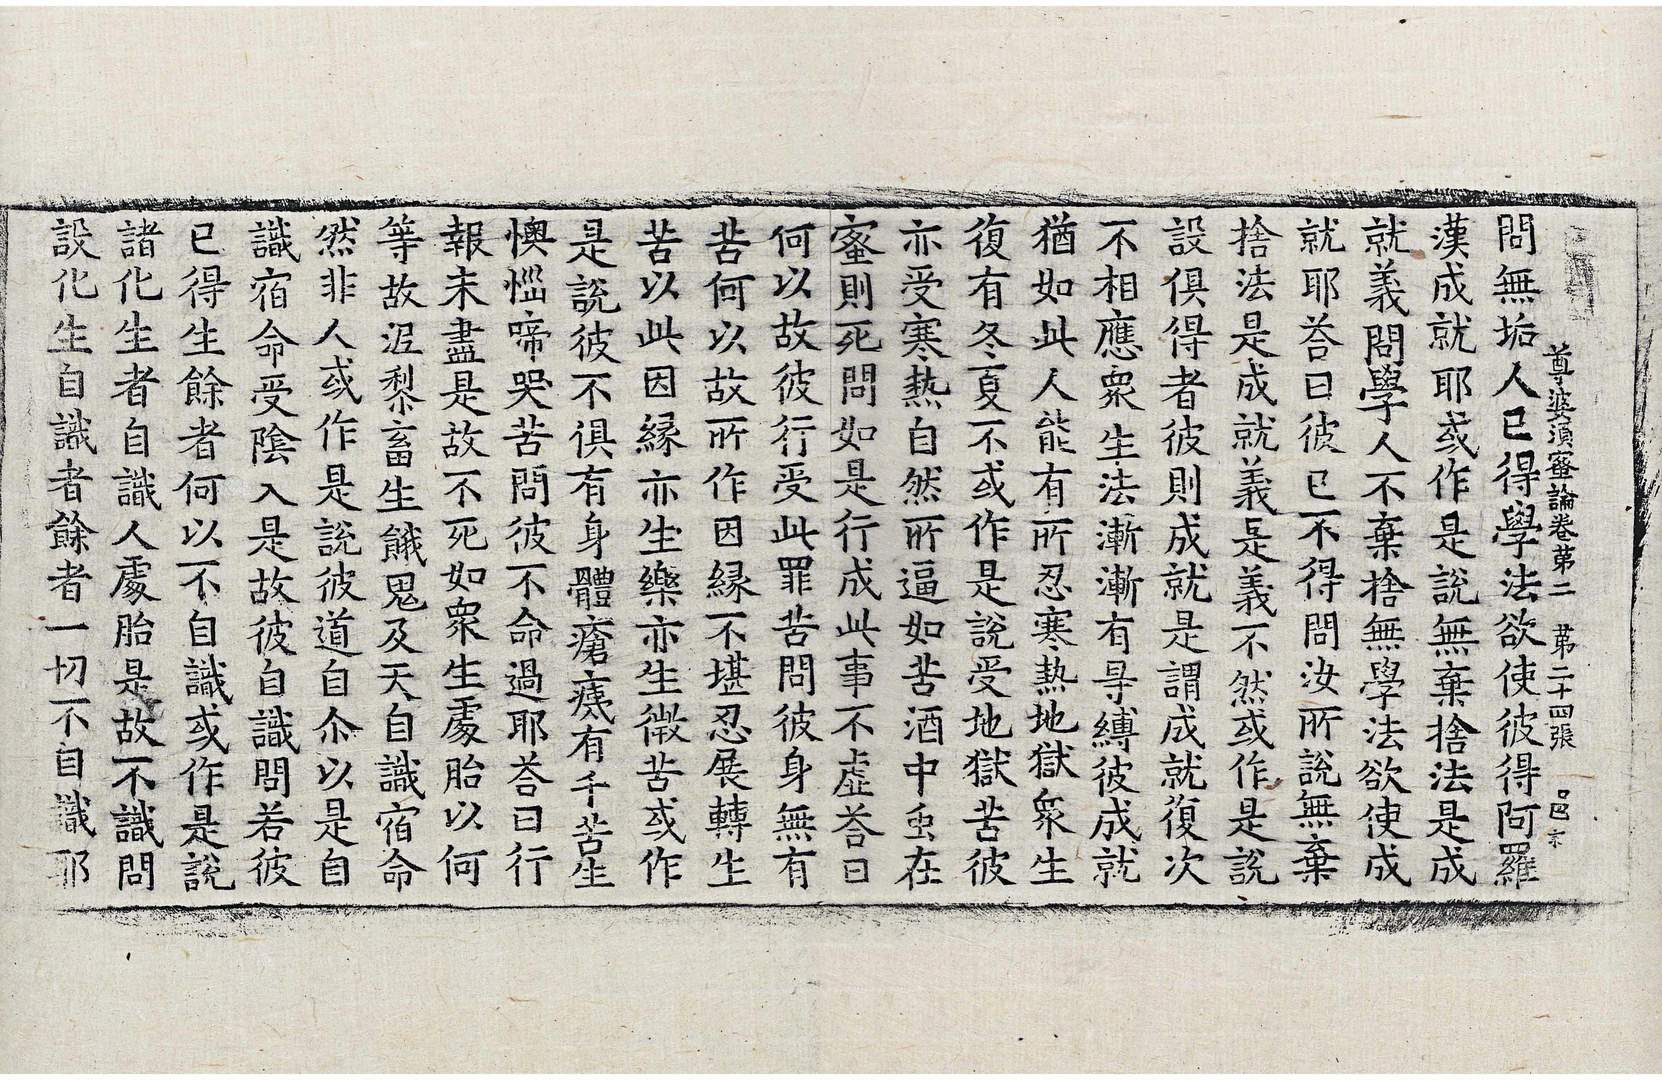 尊婆須蜜論卷第二　第二十四張　邑
問無垢人已得學法欲使彼得阿羅
漢成就耶或作是說無棄捨法是成
就義問學人不棄捨無學法欲使成
就耶荅曰彼已不得問汝所說無棄
捨法是成就義是義不然或作是說
設俱得者彼則成就是謂成就復次
不相應衆生法漸漸有㝵縛彼成就
猶如此人能有所忍寒熱地獄衆生
復有冬夏不或作是說受地獄苦彼
亦受寒熱自然所逼如苦酒中虫在
蜜則死問如是行成此事不虛荅曰
何以故彼行受此罪苦問彼身無有
苦何以故所作因緣不堪忍展轉生
苦以此因緣亦生樂亦生微苦或作
是說彼不俱有身體瘡痍有千苦生
懊惱啼哭苦問彼不命過耶荅曰行
報未盡是故不死如衆生處胎以何
等故泥梨畜生餓鬼及天自識宿命
然非人或作是說彼道自尒以是自
識宿命受陰入是故彼自識問若彼
已得生餘者何以不自識或作是說
諸化生者自識人處胎是故不識問
設化生自識者餘者一切不自識耶